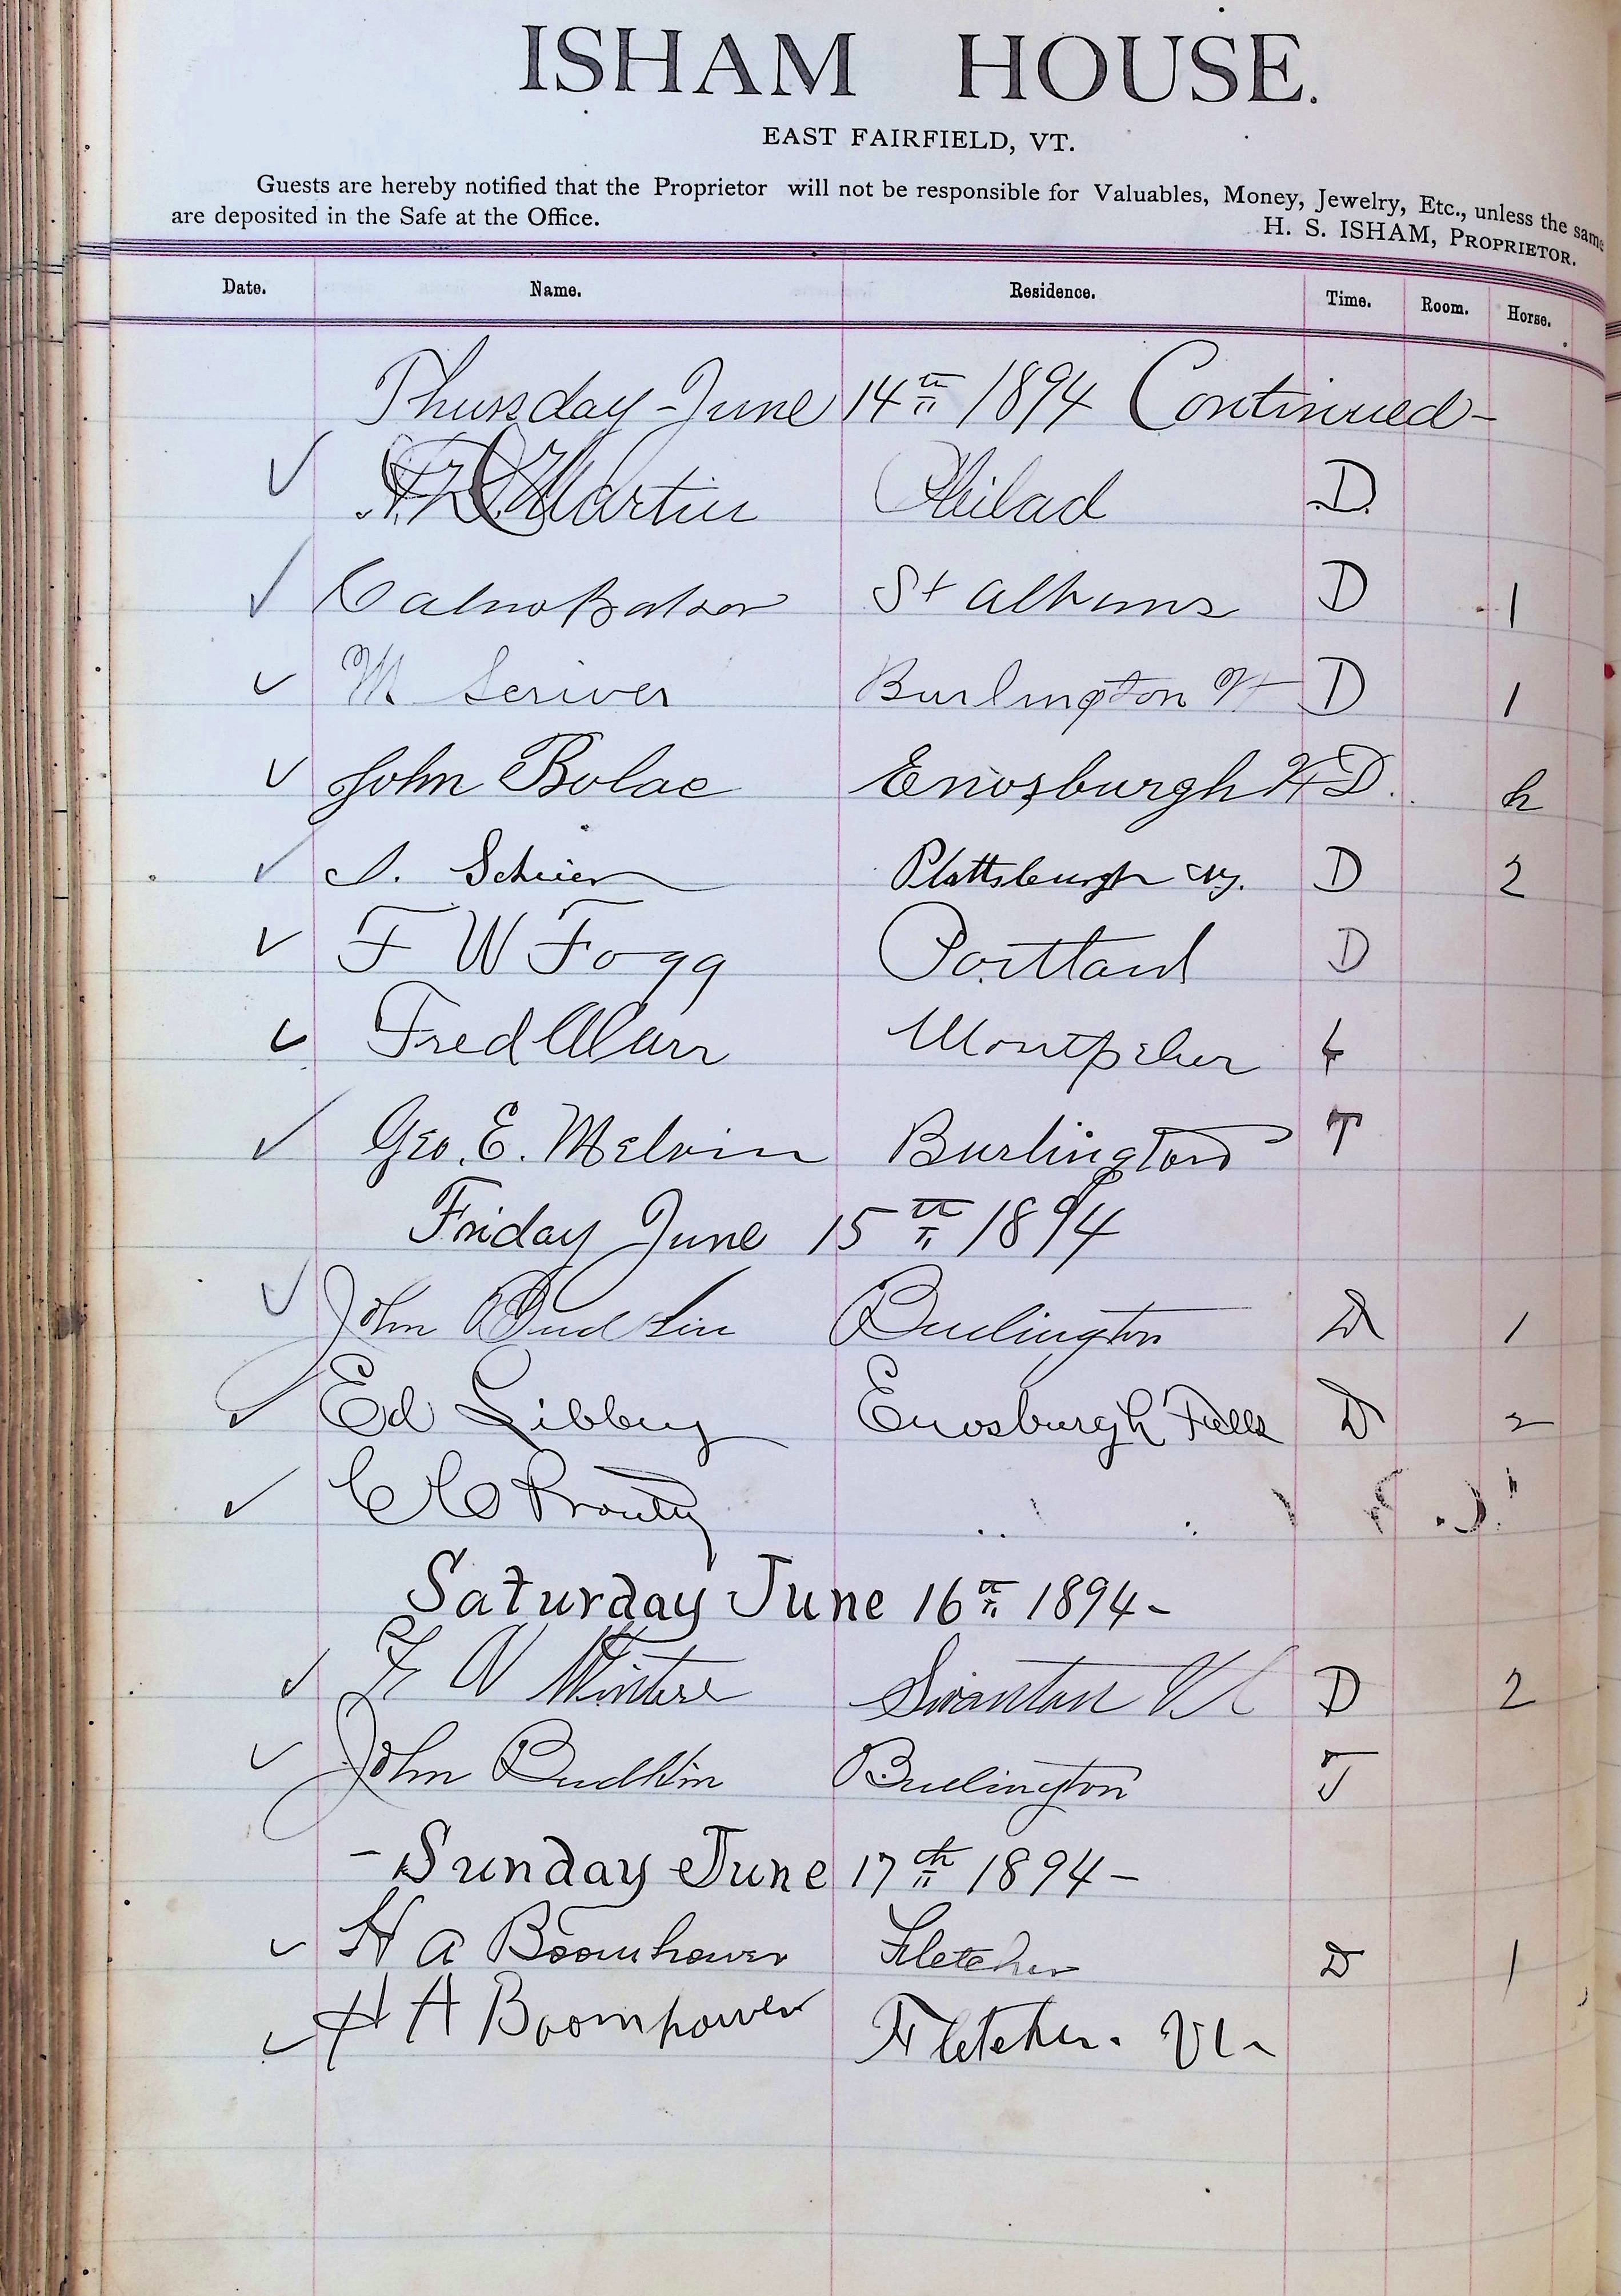 ISHAM HOUSE.
EAST FAIRFIELD, VT.
Guests are hereby notified that the Proprietor will not be responsible for Valuables, Money, Jewelry, Etc., unless the same
are deposited in the Safe at the Office.
H. S. ISHAM, PROPRIETOR.
Date. Name. Residence. Time. Room. Horse.
Thursday - June 14th 1894 Continued -
✓ Martin Philad D.
✓ St Albans D 1
✓ M Scriver Burlington Vt D 1
✓ John Bolac Enosburgh Vt D. h
✓ Plattsburgh NY. D 2
✓ F W Fogg Portland D
✓ Fred Marr Montpelier
✓ Geo. E. Melvin Burlington T
Friday June 15th 1894
✓ John Burlington D 1
✓ Ed Libbey Enosburgh Falls D 2
✓ Prouty
Saturday June 16th 1894 -
✓ Swanton Vt D 2
✓ John Burlington T
- Sunday June 17th 1894 -
✓ H A Boomhower Fletcher D 1
✓ H A Boomhower Fletcher. Vt